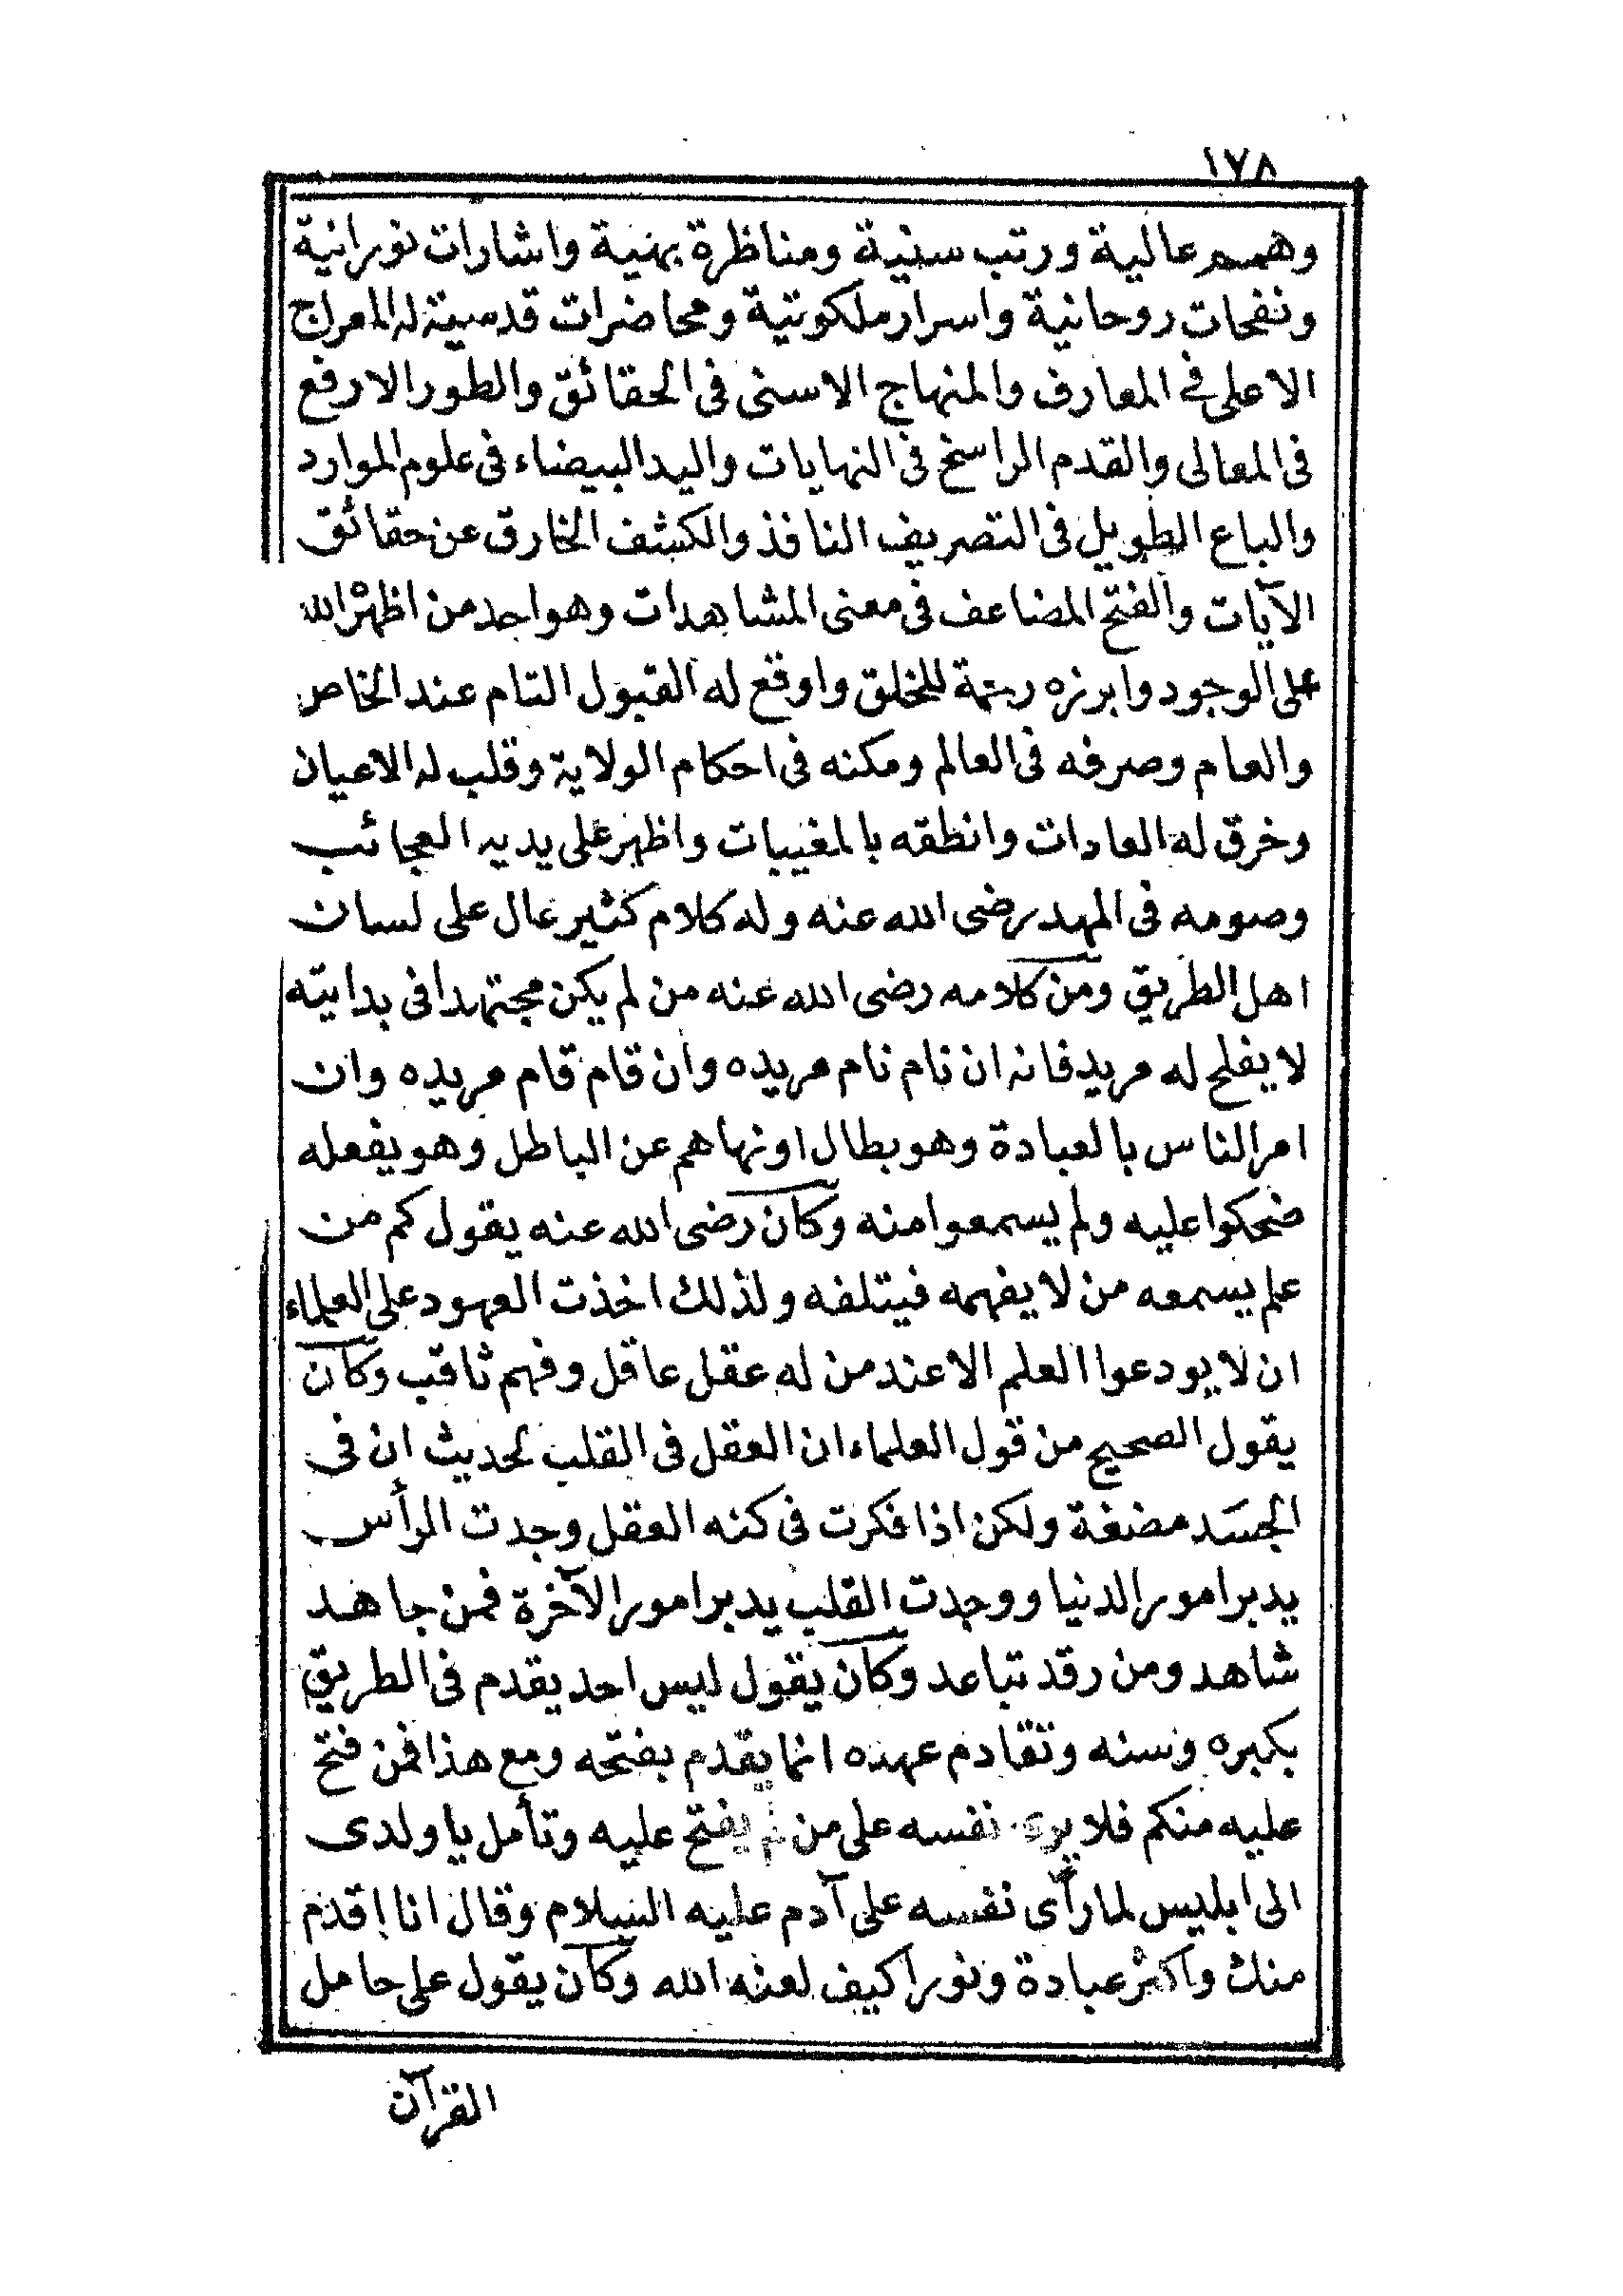 ١٧٨
وهمم عالية ورتب سنية ومناظرة بهنية واشارات نورانية
ونفحات روحانية واسرار ملكوتية ومحاضرات قدسية له المعراج
الاعلى في المعارف والمنهاج الاسنى فى الحقائق والطور الارفع
فى المعالى والقدم الراسخ فى النهايات واليد البيضاء فى علوم الموارد
والباع الطويل فى التصريف النافذ والكشف الخارق عن حقائق
الآيات والفتح المضاعف فى معنى المشاهدات وهو احد من اظهره الله
على الوجود وابرزه رحمة للخلق واوقع له القبول التام عند الخاص
والعام وصرفه فى العالم ومكنه فى احكام الولاية وقلب له الاعيان
وخرق له العادات وانطقه بالمغيبات واظهر على يديه العجائب
وصومه فى المهد رضى الله عنه وله كلام كثير عال على لسان
اهل الطريق ومن كلامه رضى الله عنه من لم يكن مجتهدا فى بدايته
لا يفلح له مريد فانه ان نام نام مريده وان قام قام مريده وان
امر الناس بالعبادة وهو بطال اونهاهم عن الباطل وهو يفعله
ضحكوا عليه ولم يسمعوا منه وكان رضى الله عنه يقول كم من
علم يسمعه من لا يفهمه فيتلفه ولذلك اخذت العهود على العلماء
ان لا يودعوا العلم الا عند من له عقل عاقل وفهم ثاقب وكان
يقول الصحيح من قول العلماء ان العقل فى القلب لحديث ان فى
الجسد مضغة ولكن اذا فكرت فى كنه العقل وجدت الرأس
يدبر امور الدنيا ووجدت القلب يدبر امور الآخرة فمن جاهد
شاهد ومن رقد تباعد وكان يقول ليس احد يقدم فى الطريق
بكبره وسنه وتقادم عهده انما يقدم بفتحه ومع هذا فمن فتح
عليه منكم فلا يرى نفسه على من لم يفتح عليه وتأمل يا ولدى
الى ابليس لما رأى نفسه على آدم عليه السلام وقال انا اقدم
منك واكثر عبادة ونورا كيف لعنه الله وكان يقول على حامل
القرآن